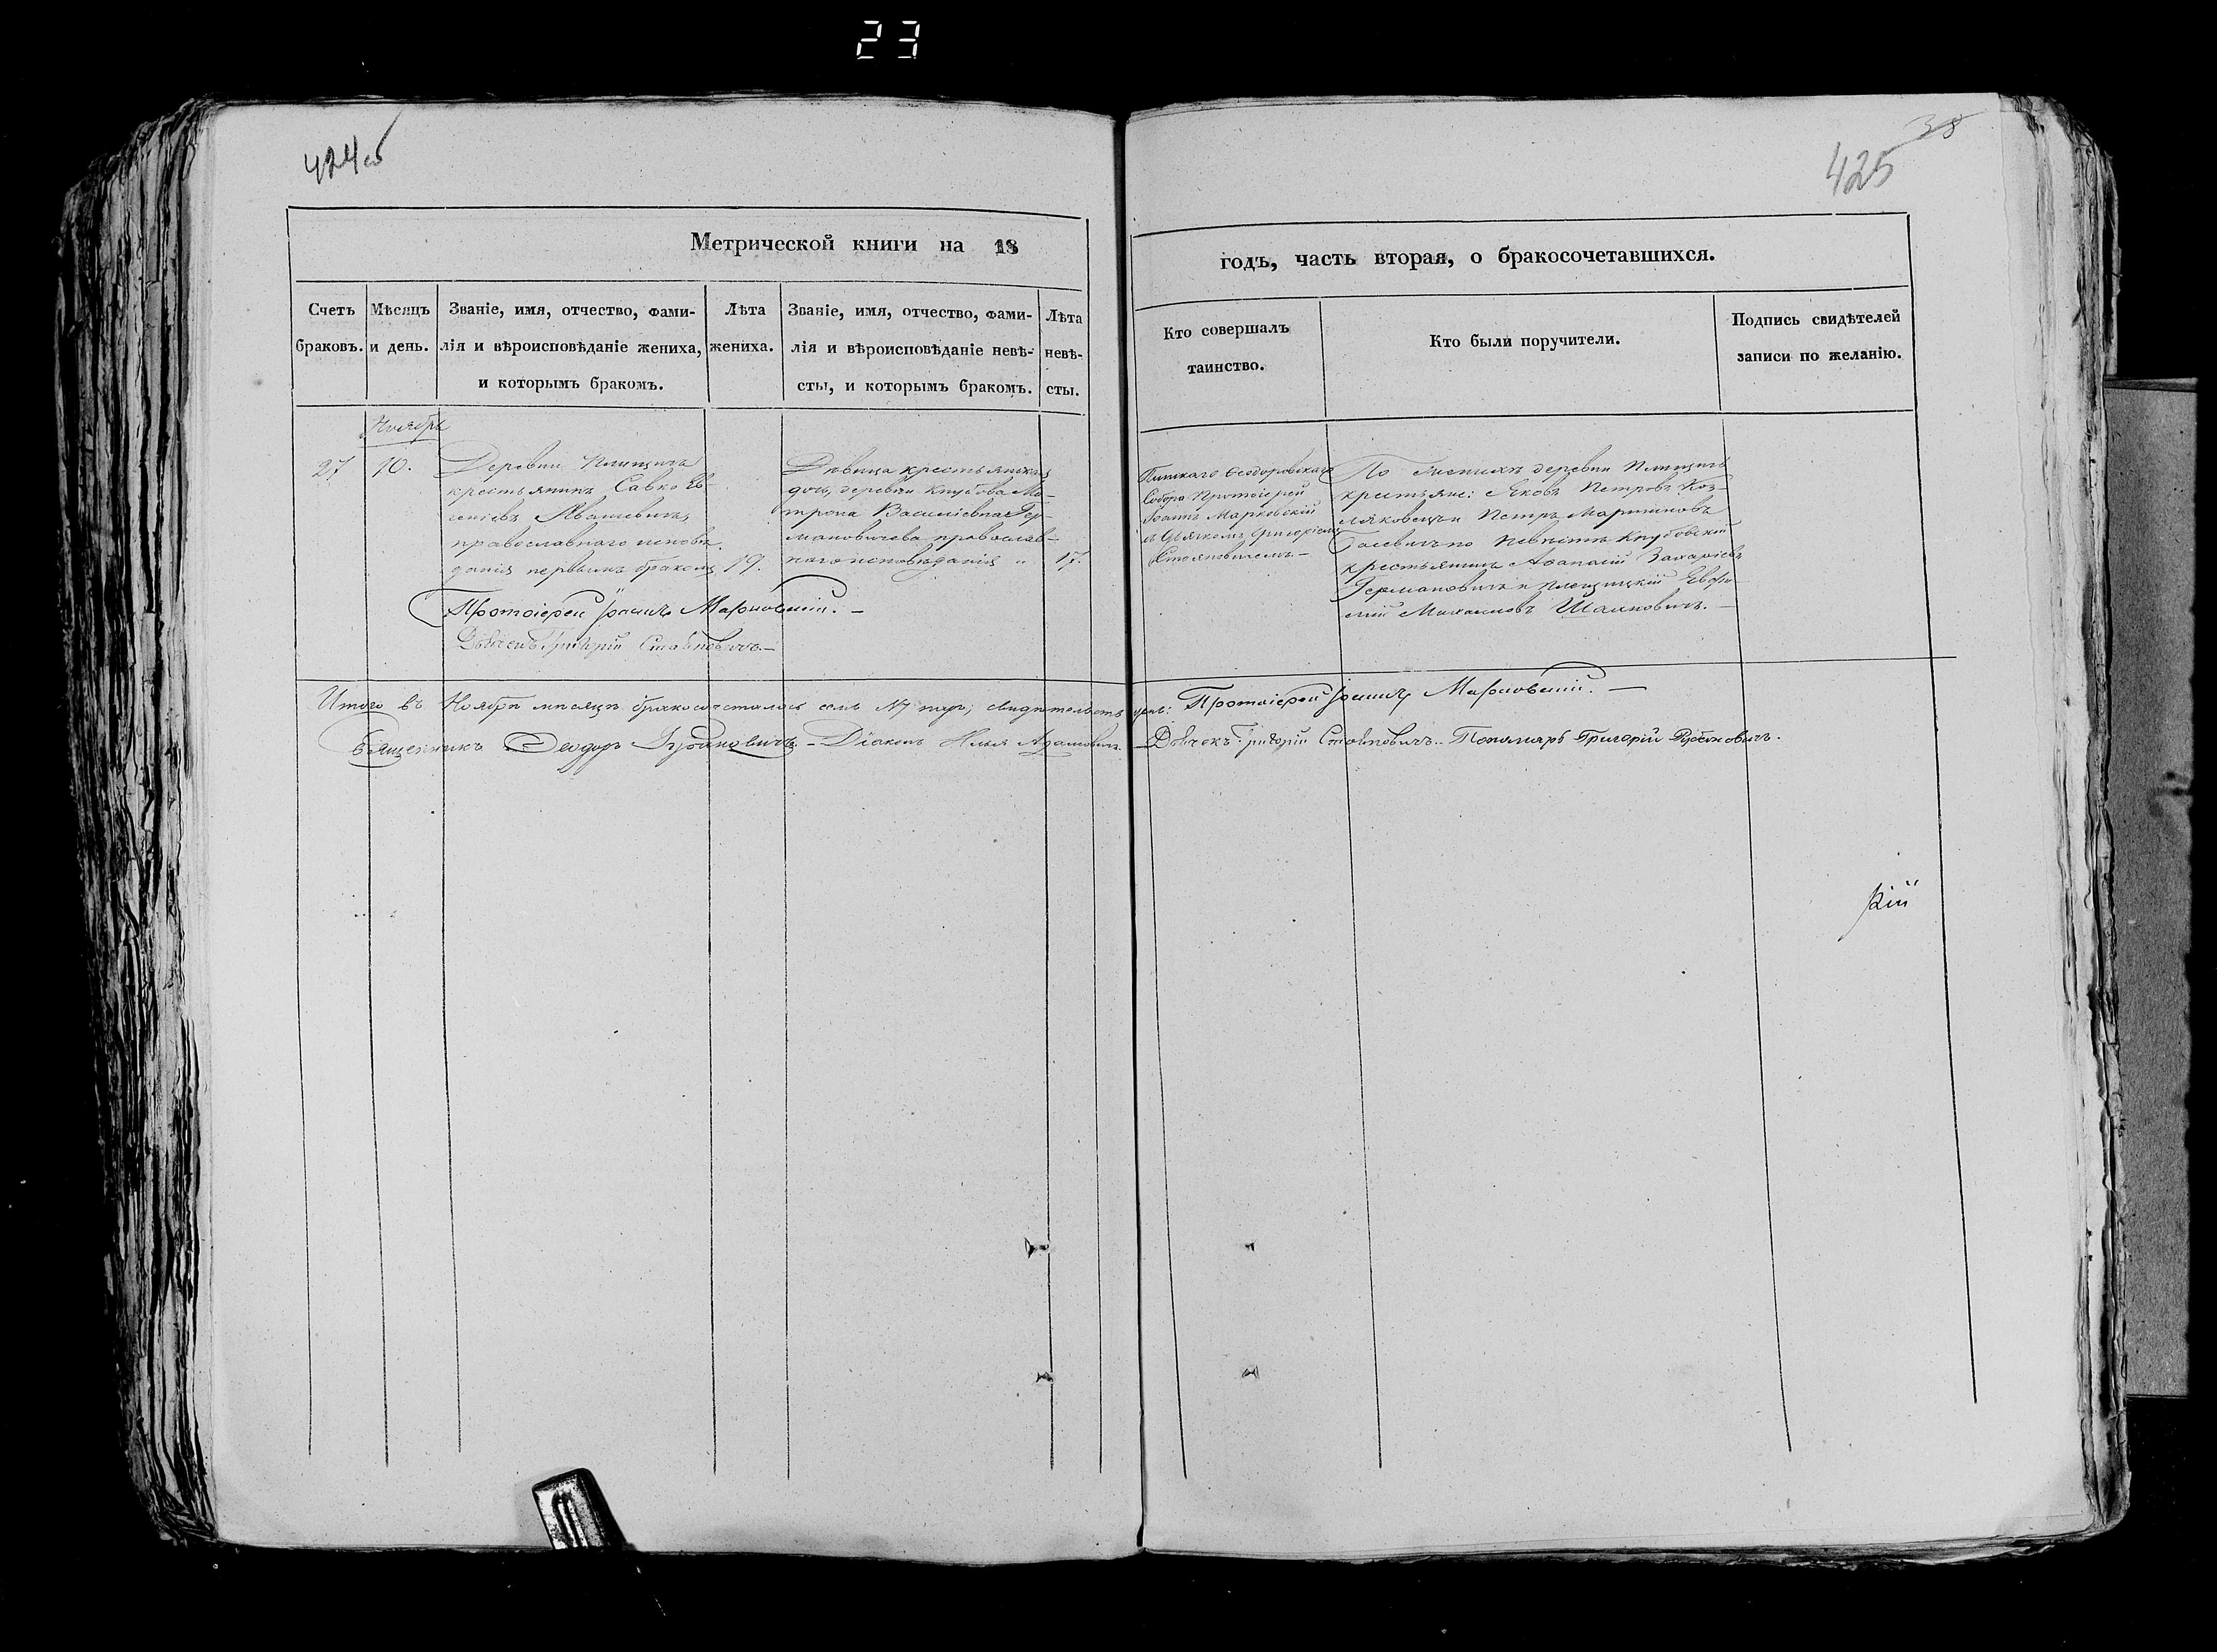 23
424об
38
425
Метрической книги на 18
годъ, часть вторая, о бракосочетавшихся.
Счетъ браковъ.
Мѣсяцъ и день.
Званіе, имя, отчество, фами-
лія и вѣроисповѣданіе жениха,
и которымъ бракомъ.
Лѣта
жениха.
Званіе, имя, отчество, фами-
лія и вѣроисповѣданіе невѣ-
сты, и которымъ бракомъ.
Лѣта
невѣ-
сты.
Кто совершалъ
таинство.
Кто были поручители.
Подпись свидѣтелей
записи по желанію.
Ноябрь
27
10.
Деревни
крестьянинъ Савко Ев-
православнаго исповѣ-
данія первымъ бракомъ
19.
Дѣвица крестьянская
дочь, деревни Кнубова Ма-
трона Василіевна Гер-
мановичева православ-
наго исповѣданія
17.
Пинскаго Ѳеодоровскаго
Собора Протоіерей
Іоаннъ Марковскій
съ Дьячкомъ Григоріемъ
По женихѣ деревни
крестьяне: Яковъ Петровъ Коз-
ляковецъ и Петръ Мартиновъ
по невѣстѣ Кнубовскій
крестьянинъ Аѳанасій Захаріевъ
Германовичъ и Евфи-
мій Михаиловъ
Протоіерей Іоаннъ Марковскій. —
Дьячекъ Григорій
Итого въ Ноябрѣ мѣсяцѣ бракосочеталось семь паръ; свидѣтельствуемъ: Протоіерей Іоаннъ Марковскій. —
Священникъ Ѳеодоръ — Діаконъ Илья — Дьячекъ Григорій — Пономарь Григорій
кій